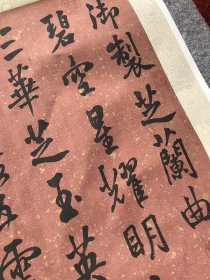 御製芝蘭曲
碧空星耀明
三華芝玉英